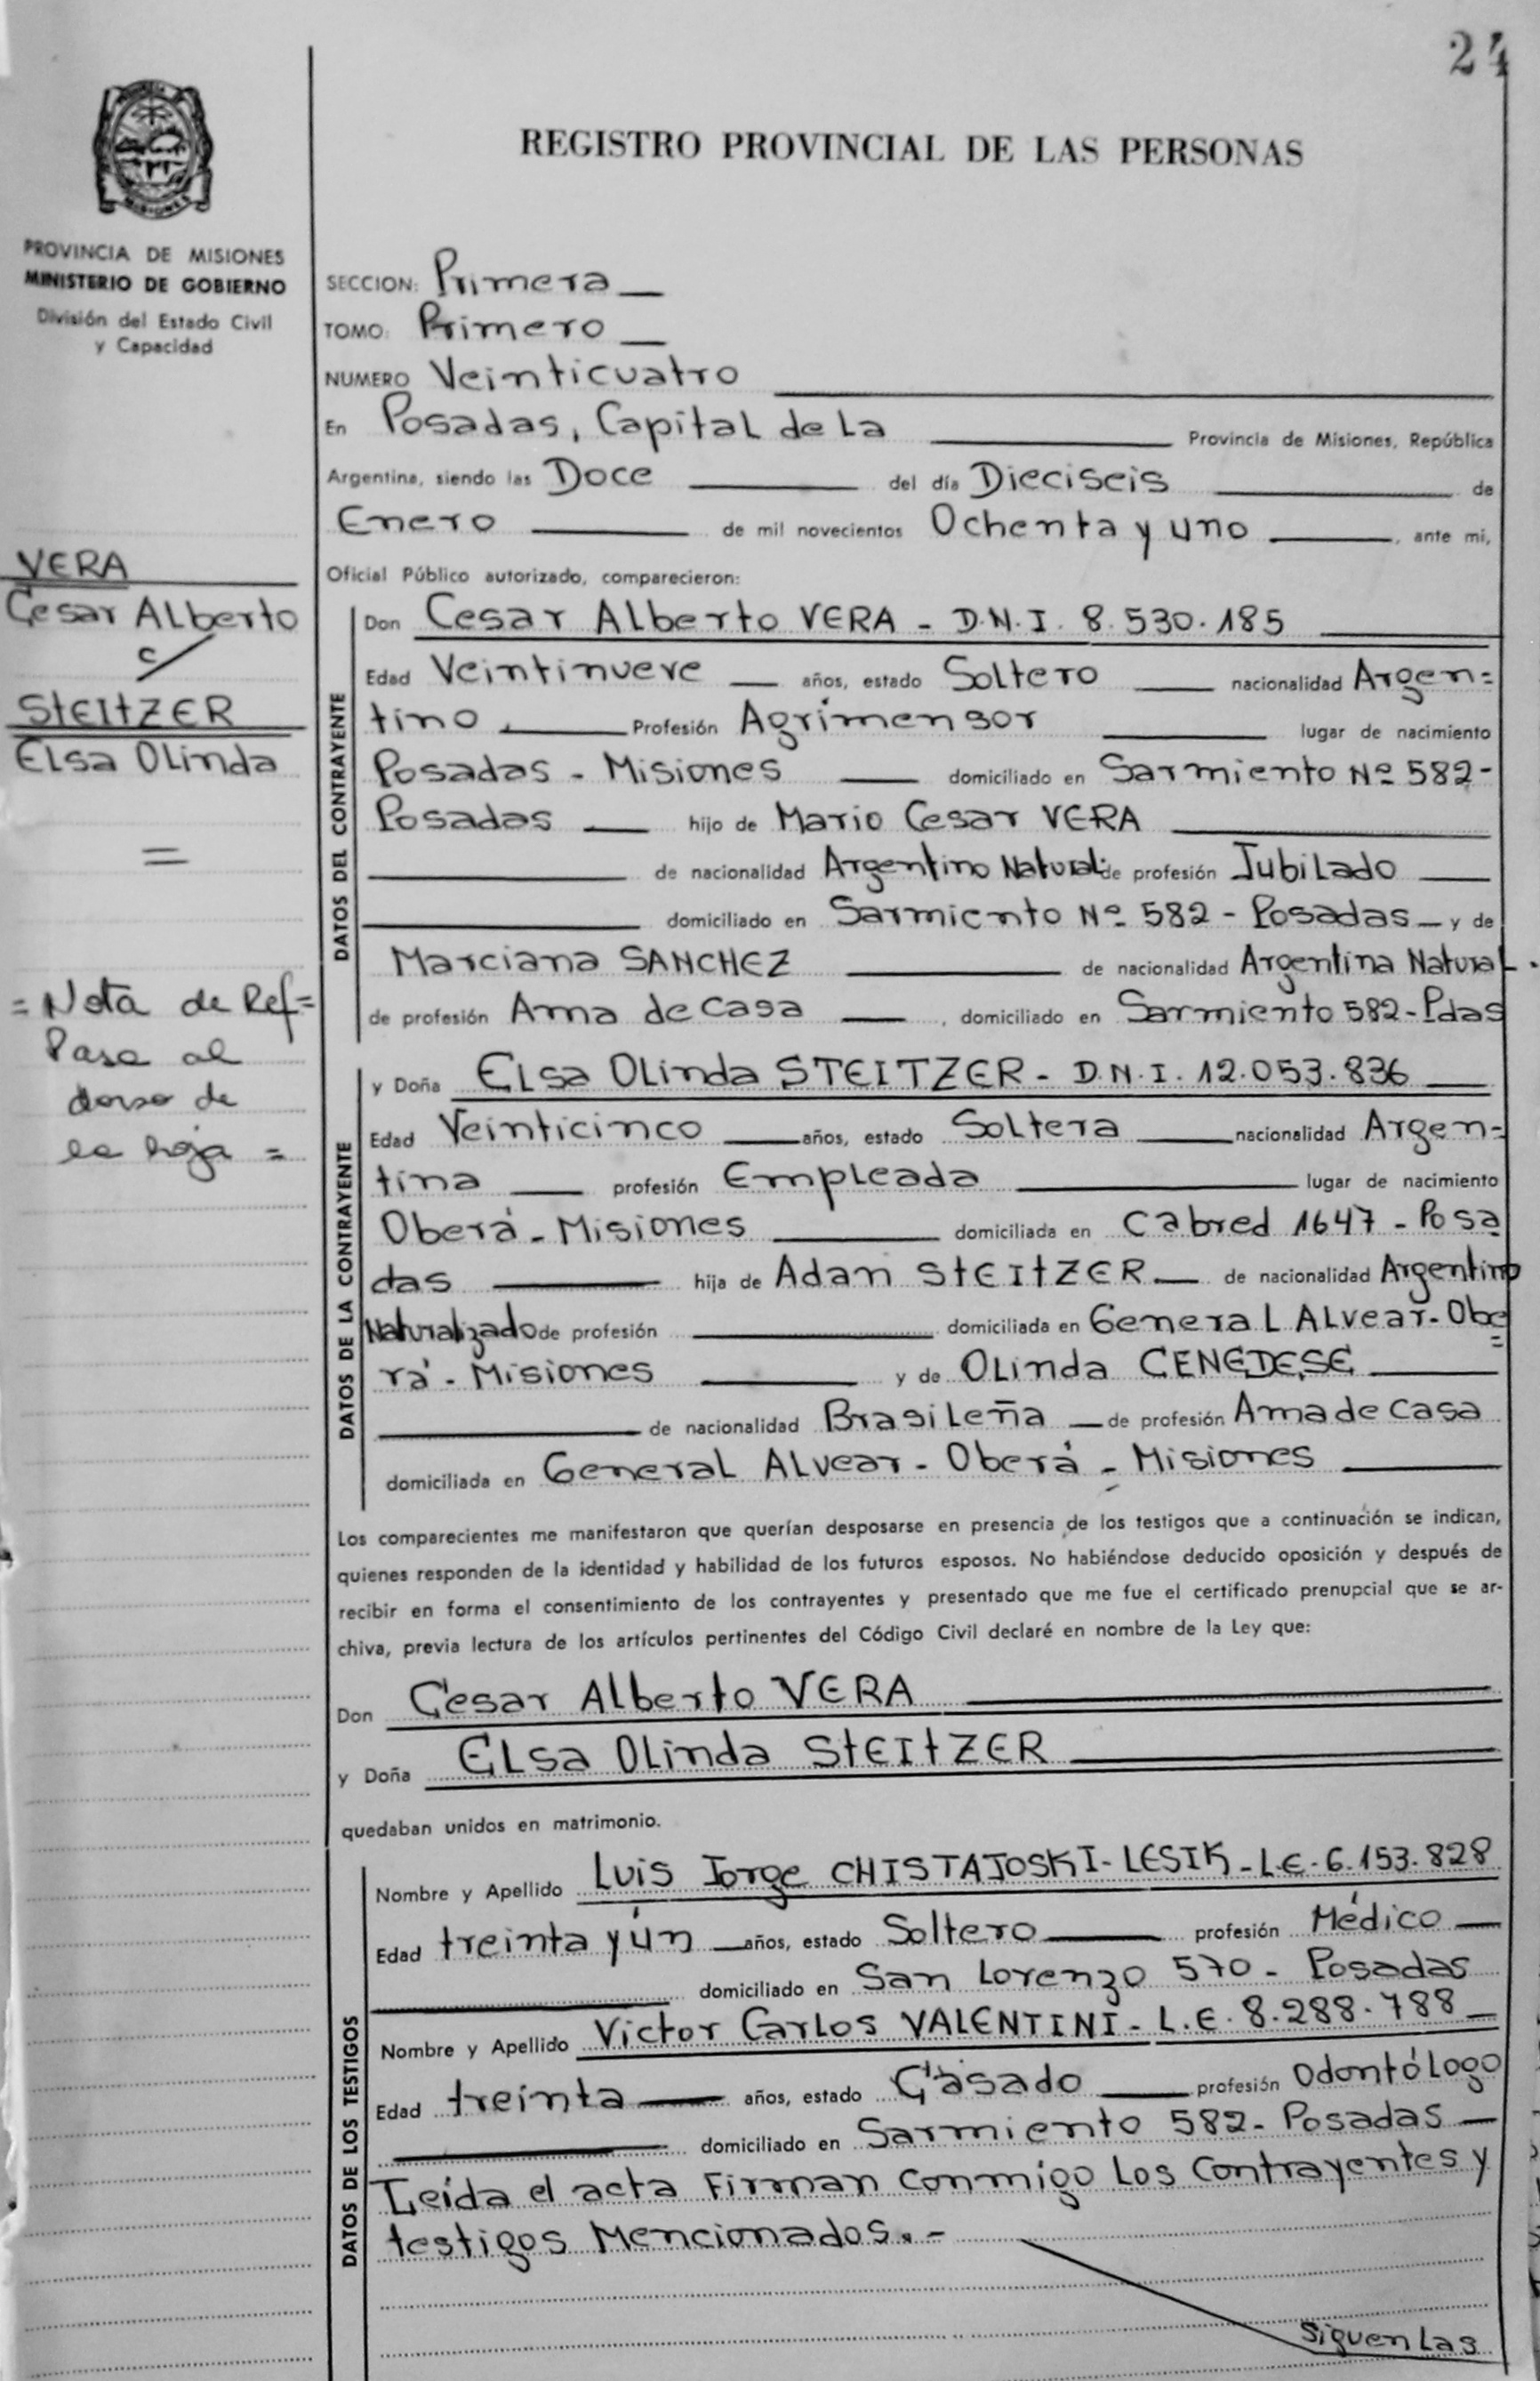 24
MISIONES
REGISTRO PROVINCIAL DE LAS PERSONAS
PROVINCIA DE MISIONES
MINISTERIO DE GOBIERNO
División del Estado Civil
y Capacidad
SECCION: Primera
TOMO: Primero
NUMERO Veinticuatro
En Posadas, Capital de La Provincia de Misiones, República
Argentina, siendo las Doce del día Dieciseis de
Enero de mil novecientos Ochenta y uno, ante mi,
Oficial Público autorizado, comparecieron:
VERA
Cesar Alberto
c/
STEITZER
Elsa Olinda
=
= Nota de Ref =
Pasa al
dorso de
la hoja =
DATOS DEL CONTRAYENTE
Don Cesar Alberto VERA - D.N.I. 8.530.185
Edad Veintinueve años, estado Soltero nacionalidad Argen=
tino Profesión Agrimensor lugar de nacimiento
Posadas - Misiones domiciliado en Sarmiento Nº 582-
Posadas hijo de Mario Cesar VERA
de nacionalidad Argentino Natural de profesión Jubilado
domiciliado en Sarmiento Nº 582 - Posadas y de
Marciana SANCHEZ de nacionalidad Argentina Natural.
de profesión Ama de casa, domiciliado en Sarmiento 582-Pdas
DATOS DE LA CONTRAYENTE
y Doña Elsa Olinda STEITZER - D.N.I. 12.053.836
Edad Veinticinco años, estado Soltera nacionalidad Argen=
tina profesión Empleada lugar de nacimiento
Oberá - Misiones domiciliada en Cabred 1647 - Posa
das hija de Adan STEITZER de nacionalidad Argentino
Naturalizado de profesión domiciliada en General Alvear - Obe=
rá - Misiones y de Olinda CENEDESE
de nacionalidad Brasileña de profesión Ama de casa
domiciliada en General Alvear - Oberá - Misiones
Los comparecientes me manifestaron que querían desposarse en presencia de los testigos que a continuación se indican,
quienes responden de la identidad y habilidad de los futuros esposos. No habiéndose deducido oposición y después de
recibir en forma el consentimiento de los contrayentes y presentado que me fue el certificado prenupcial que se ar-
chiva, previa lectura de los artículos pertinentes del Código Civil declaré en nombre de la Ley que:
Don Cesar Alberto VERA
y Doña Elsa Olinda STEITZER
quedaban unidos en matrimonio.
DATOS DE LOS TESTIGOS
Nombre y Apellido Luis Jorge CHISTAJOSKI-LESIK - L.E. 6.153.828
Edad treinta y ún años, estado Soltero profesión Médico
domiciliado en San Lorenzo 570 - Posadas
Nombre y Apellido Victor Carlos VALENTINI - L.E. 8.288.788
Edad treinta años, estado Casado profesión Odontólogo
domiciliado en Sarmiento 582 - Posadas
Leída el acta Firman conmigo Los Contrayentes y
testigos Mencionados.-
Siguen Las